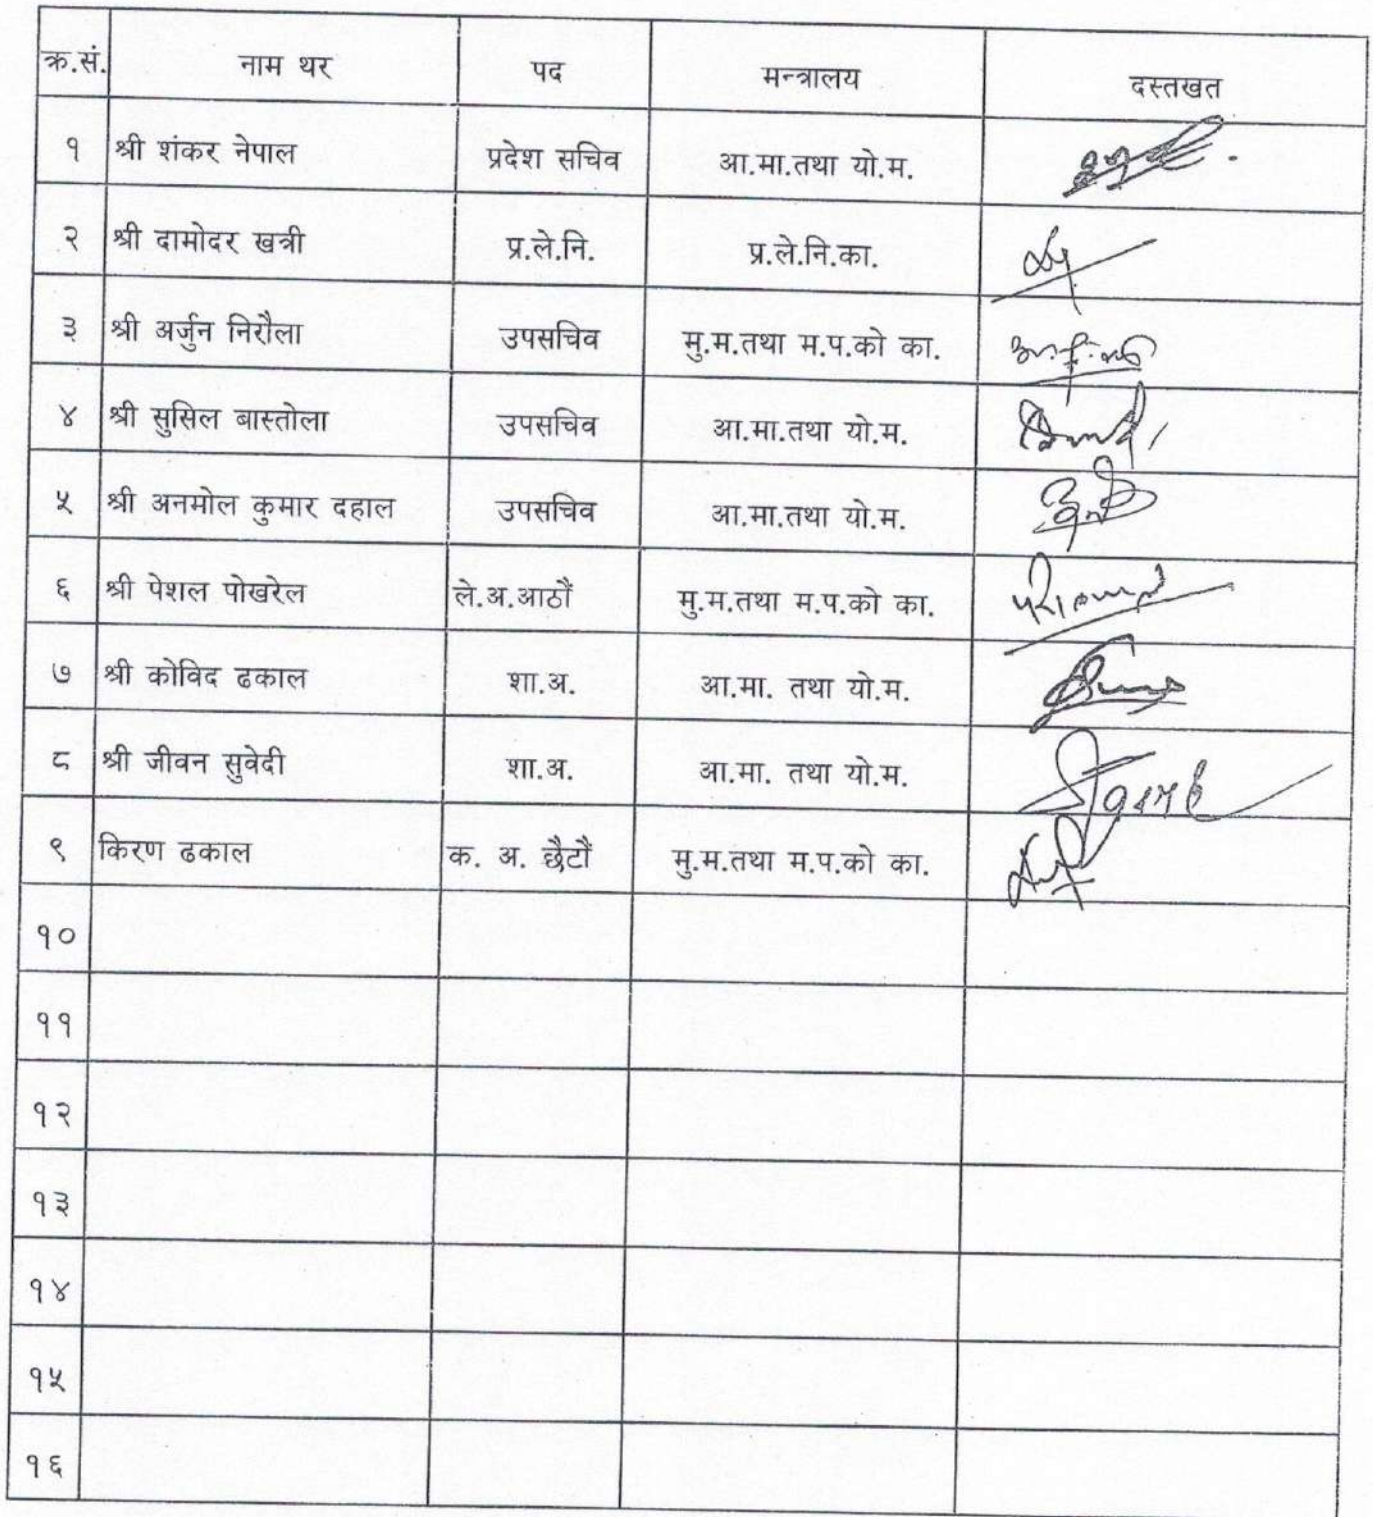 क्र.सं. नाम थर पद मन्त्रालय दस्तखत
१ श्री शंकर नेपाल प्रदेश सचिव आ.मा.तथा यो.म.
२ श्री दामोदर खत्री प्र.ले.नि. प्र.ले.नि.का.
३ श्री अर्जुन निरौला उपसचिव मु.म.तथा म.प.को का.
४ श्री सुसिल बास्तोला उपसचिव आ.मा.तथा यो.म.
५ श्री अनमोल कुमार दहाल उपसचिव आ.मा.तथा यो.म.
६ श्री पेशल पोखरेल ले.अ.आठौं मु.म.तथा म.प.को का.
७ श्री कोविद ढकाल शा.अ. आ.मा. तथा यो.म.
८ श्री जीवन सुवेदी शा.अ. आ.मा. तथा यो.म.
९ किरण ढकाल क. अ. छैटौं मु.म.तथा म.प.को का.
१०
११
१२
१३
१४
१५
१६